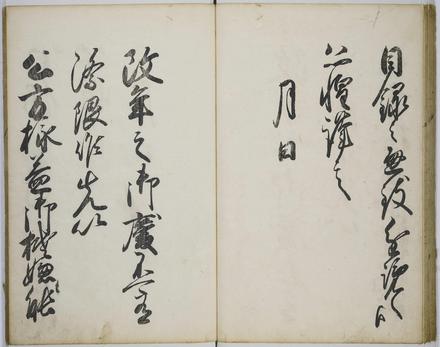 目録之通致進覧候
恐惶謹言
月日
改年之御慶不可有
際限候先以
公方様益御機嫌能